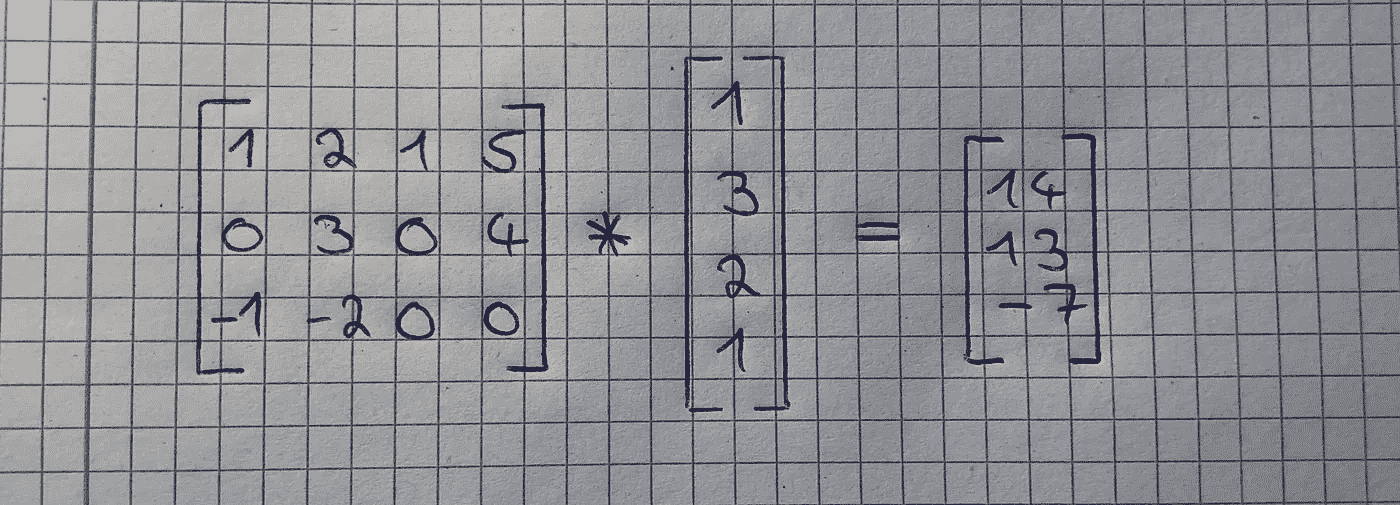 [1 2 1 5
0 3 0 4
-1 -2 0 0] * [1
3
2
1] = [14
13
-7]